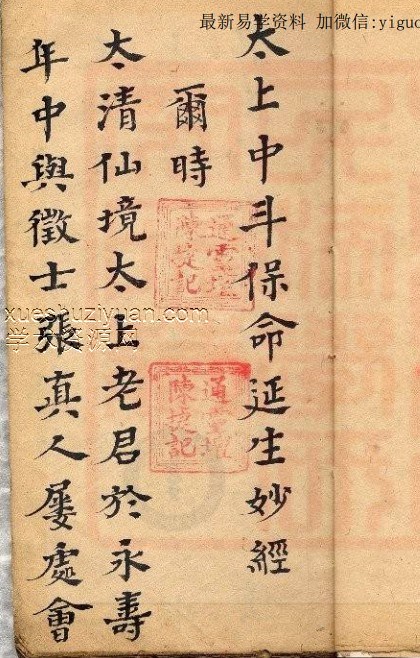 最新易学资料 加微信:yiguo
太上中斗保命延生妙經
爾時
太清仙境太上老君於永壽
年中與徵士張真人屢處會
xueshuziyuan.com
学 资源网
通雲壇
陳捷記
通雲壇
陳捷記